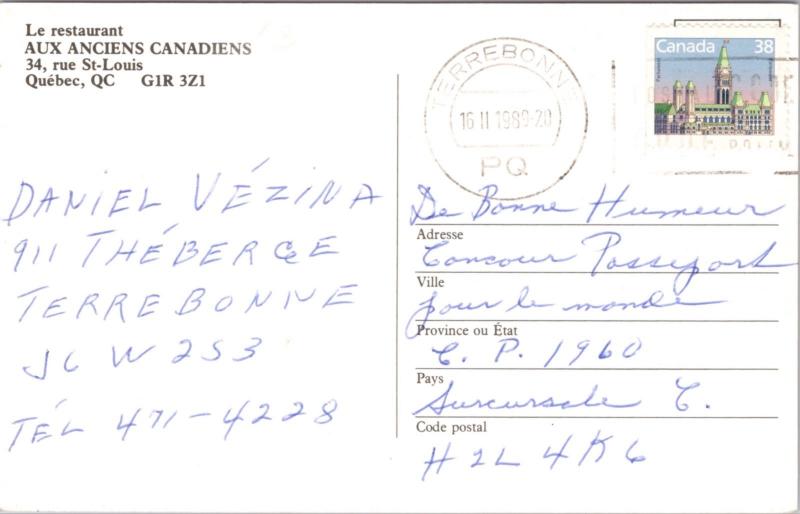 Le restaurant
AUX ANCIENS CANADIENS
34, rue St-Louis
Québec, QC G1R 3Z1
TERREBONNE
16 II 1989-20
PQ
Canada 38
DANIEL VÉZINA
911 THÉBERGE
TERREBONNE
J6W 2S3
TÉL 471-4228
De Bonne Humeur
Adresse
Concour Passeport
Ville
pour le monde
Province ou État
C. P. 1960
Pays
Surcursale C.
Code postal
H2L 4K6